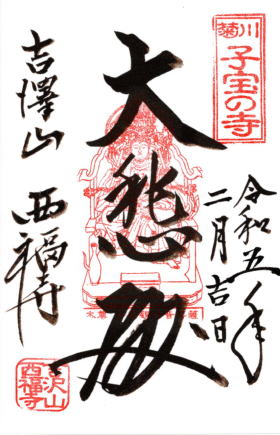 菊川
子宝の寺
令和五年
二月吉日
大悲殿
吉澤山
西福寺
吉沢山
西福寺